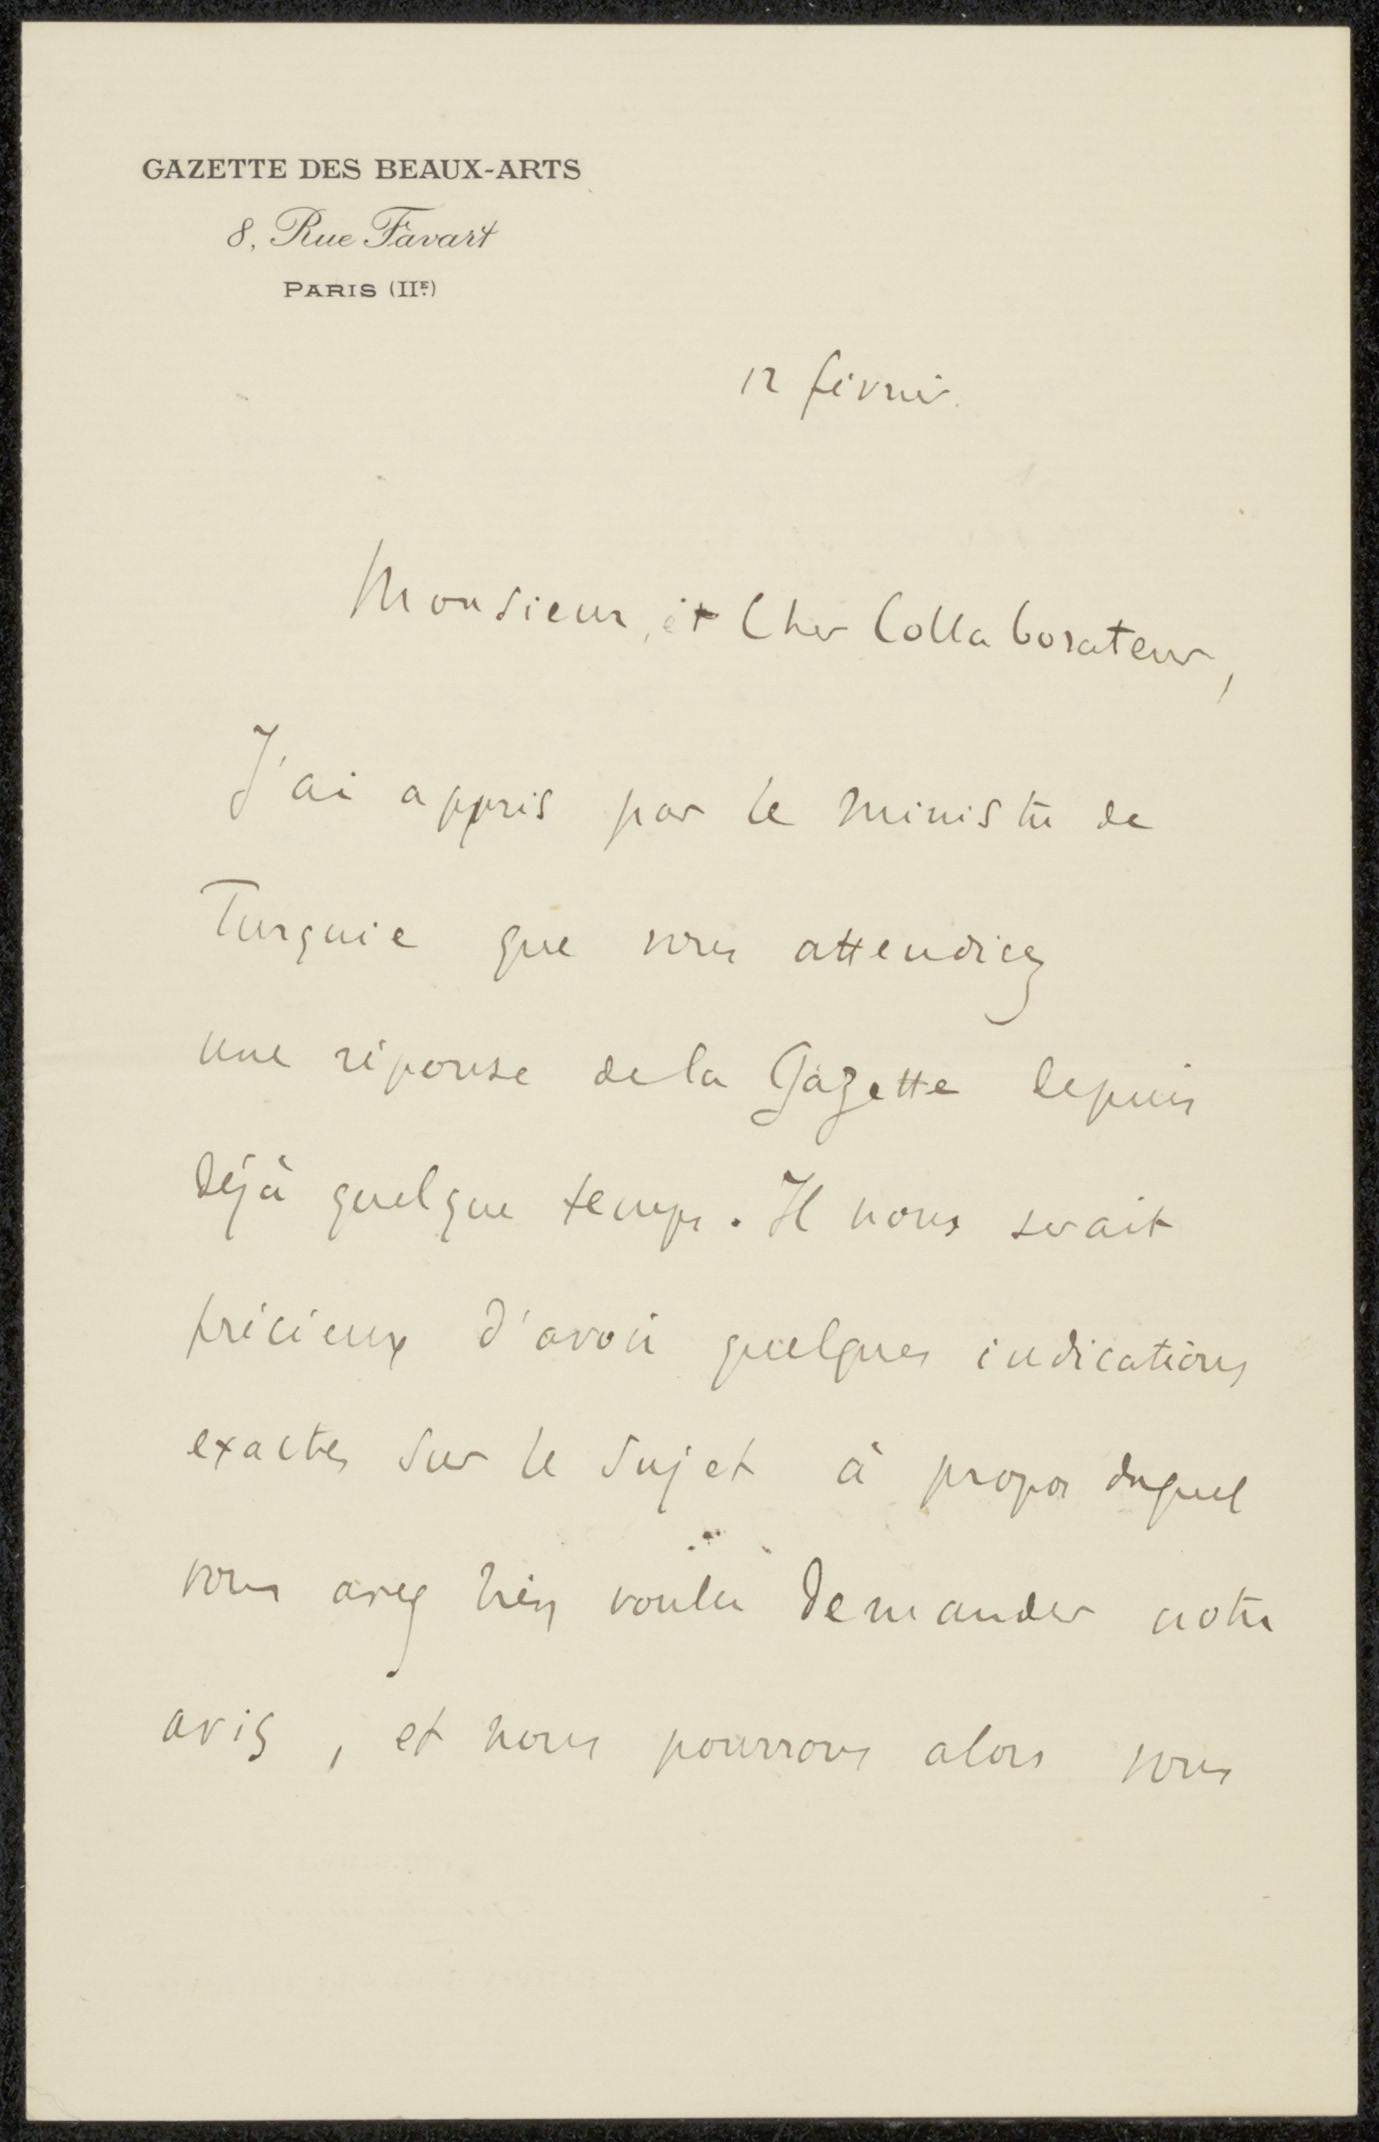 GAZETTE DES BEAUX-ARTS
8, Rue Favart
PARIS (IIE)
12 février.
Monsieur, et Cher Collaborateur,
J'ai appris par le ministre de
Turquie que vous attendiez
une réponse de la Gazette depuis
déjà quelque temps. Il nous serait
précieux d'avoir quelques indications
exactes sur le sujet à propos duquel
vous avez bien voulu demander notre
avis, et nous pourrons alors vous